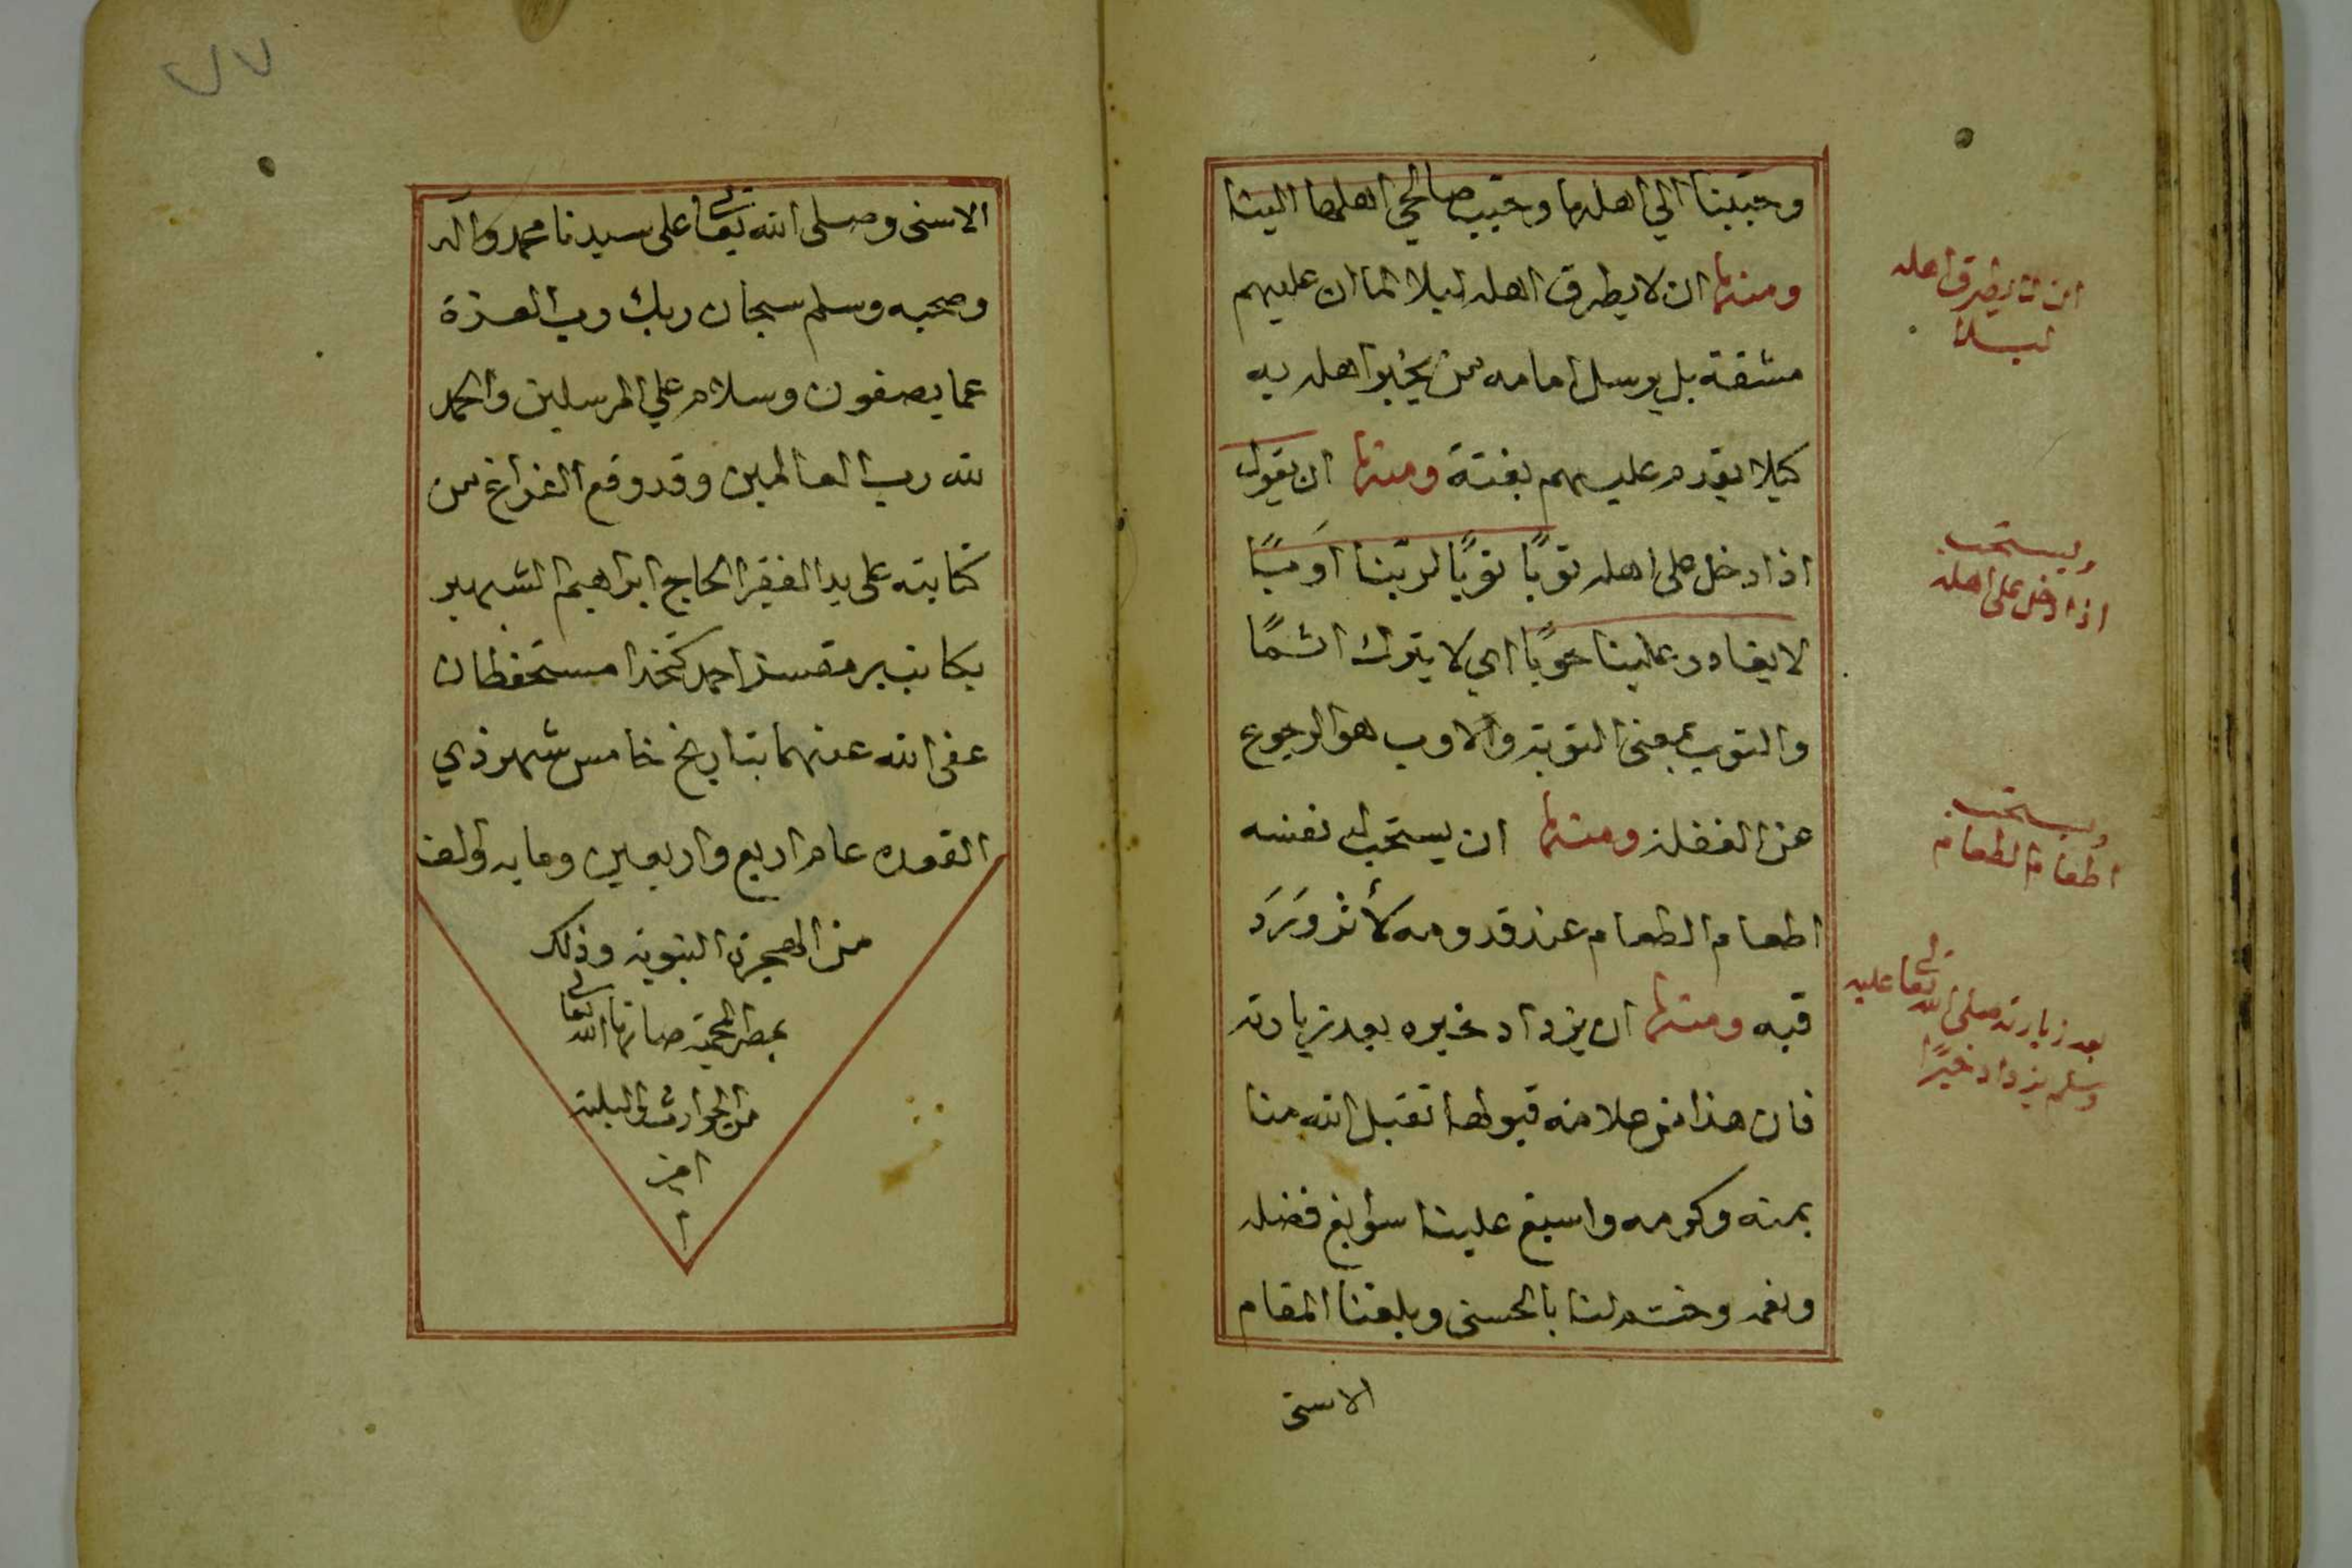 وحببنا الي اهلها وحبب صالحي اهلها الينا
ومنها ان لا يطرق اهله ليلا لما ان عليهم
مشقة بل يرسل امامه من يخبر اهله به
كيلا يقدم عليهم بغتة ومنها ان يقول
اذا دخل على اهله توبًا توبًا لربنا اَوبًا
لا يغادر علينا حوبًا اي لا يترك اثمًا
والتوب بمعنى التوبة والاوب هو الرجوع
عن الغفلة ومنها ان يستحب لنفسه
اطعام الطعام عند قدومه لأثر وَرَدَ
فيه ومنها ان يزداد خيره بعد زيارته
فان هذا من علامة قبولها تقبل الله منا
بمنه وكرمه واسبغ علينا سوابغ فضله
ونعمه وختم لنا بالحسنى وبلغنا المقام
الاسنى
ان لا يطرق اهله
ليلا
ويستحب
اذا دخل على اهله
ويستحب
اطعام الطعام
بعد زيارته صلى الله تعالى عليه
وسلم يزداد خيرًا
٧٧
الاسنى وصلى الله تعالى على سيدنا محمد وآله
وصحبه وسلم سبحان ربك رب العزة
عما يصفون وسلام علي المرسلين والحمد
لله رب العالمين وقد وقع الفراغ من
كتابته على يد الفقير الحاج ابراهيم الشهير
بكاتب احمد كتخدا مستحفظان
عفى الله عنهما بتاريخ خامس شهر ذي
القعده عام اربع واربعين ومايه والف
من الهجرة النبوية وذلك
بمصر المحمية صانها الله تعالى
من الحوادث والبلية
امين
م